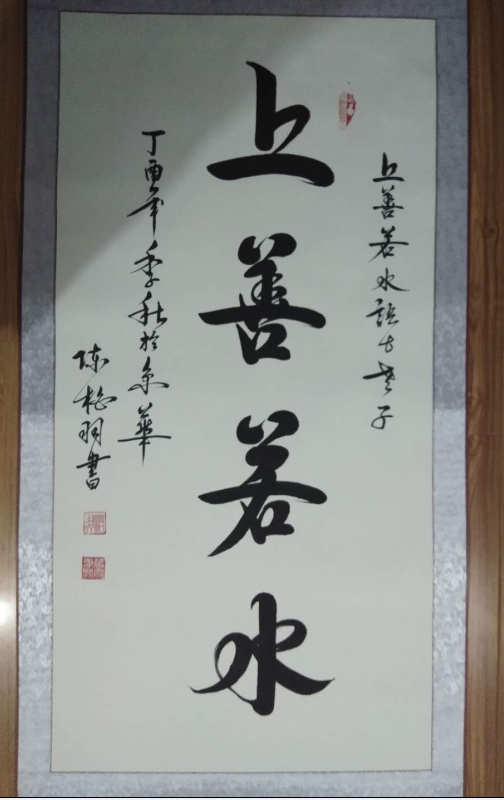 上善若水語出老子
上善若水
丁酉年季秋於京華
陈柏羽書